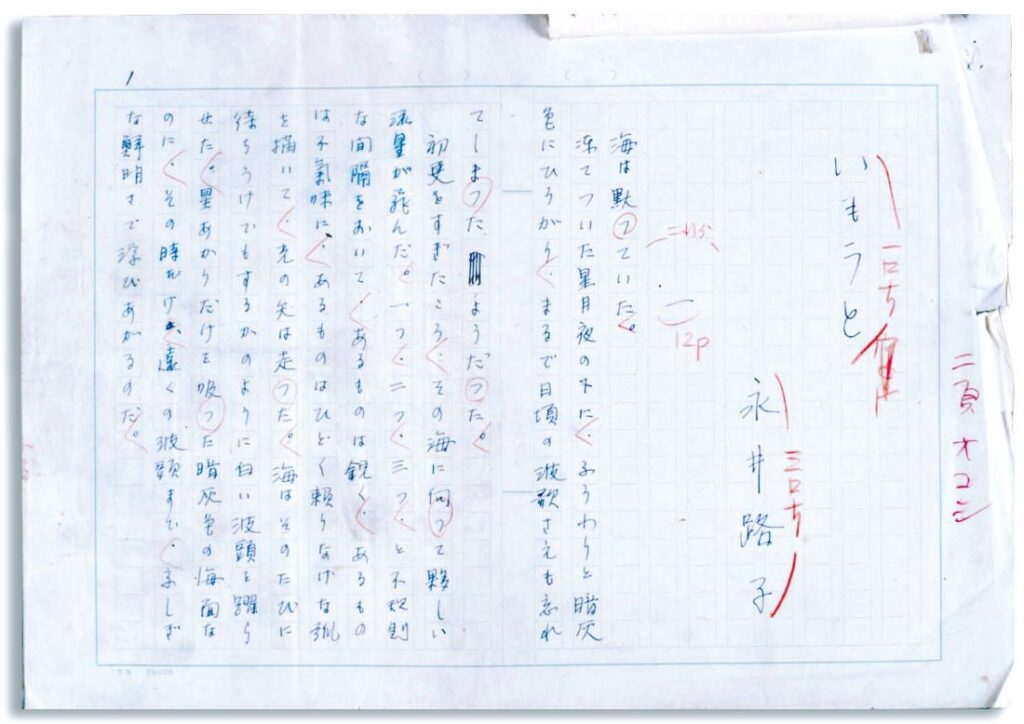 いもうと
永井路子
二頁オコシ
一
12p
海は默っていた。
凍てついた星月夜の下に、ふうわりと暗灰
色にひろがり、まるで日頃の波歌さえも忘れ
てしまったようだった。
初更をすぎたころ、その海に向って夥しい
流星が飛んだ。一つ、二つ、三つ、と不規則
な間隔をおいて、あるものは鋭く、あるもの
は不氣味に、あるものはひどく頼りなげな弧
を描いて、光の矢は走った。海はそのたびに
待ちうけでもするかのように白い波頭を躍ら
せた。星あかりだけを吸った暗灰色の海面な
のに、その時だけは、遠くの波頭まで、ふしぎ
な鮮明さで浮びあがるのだ。
1